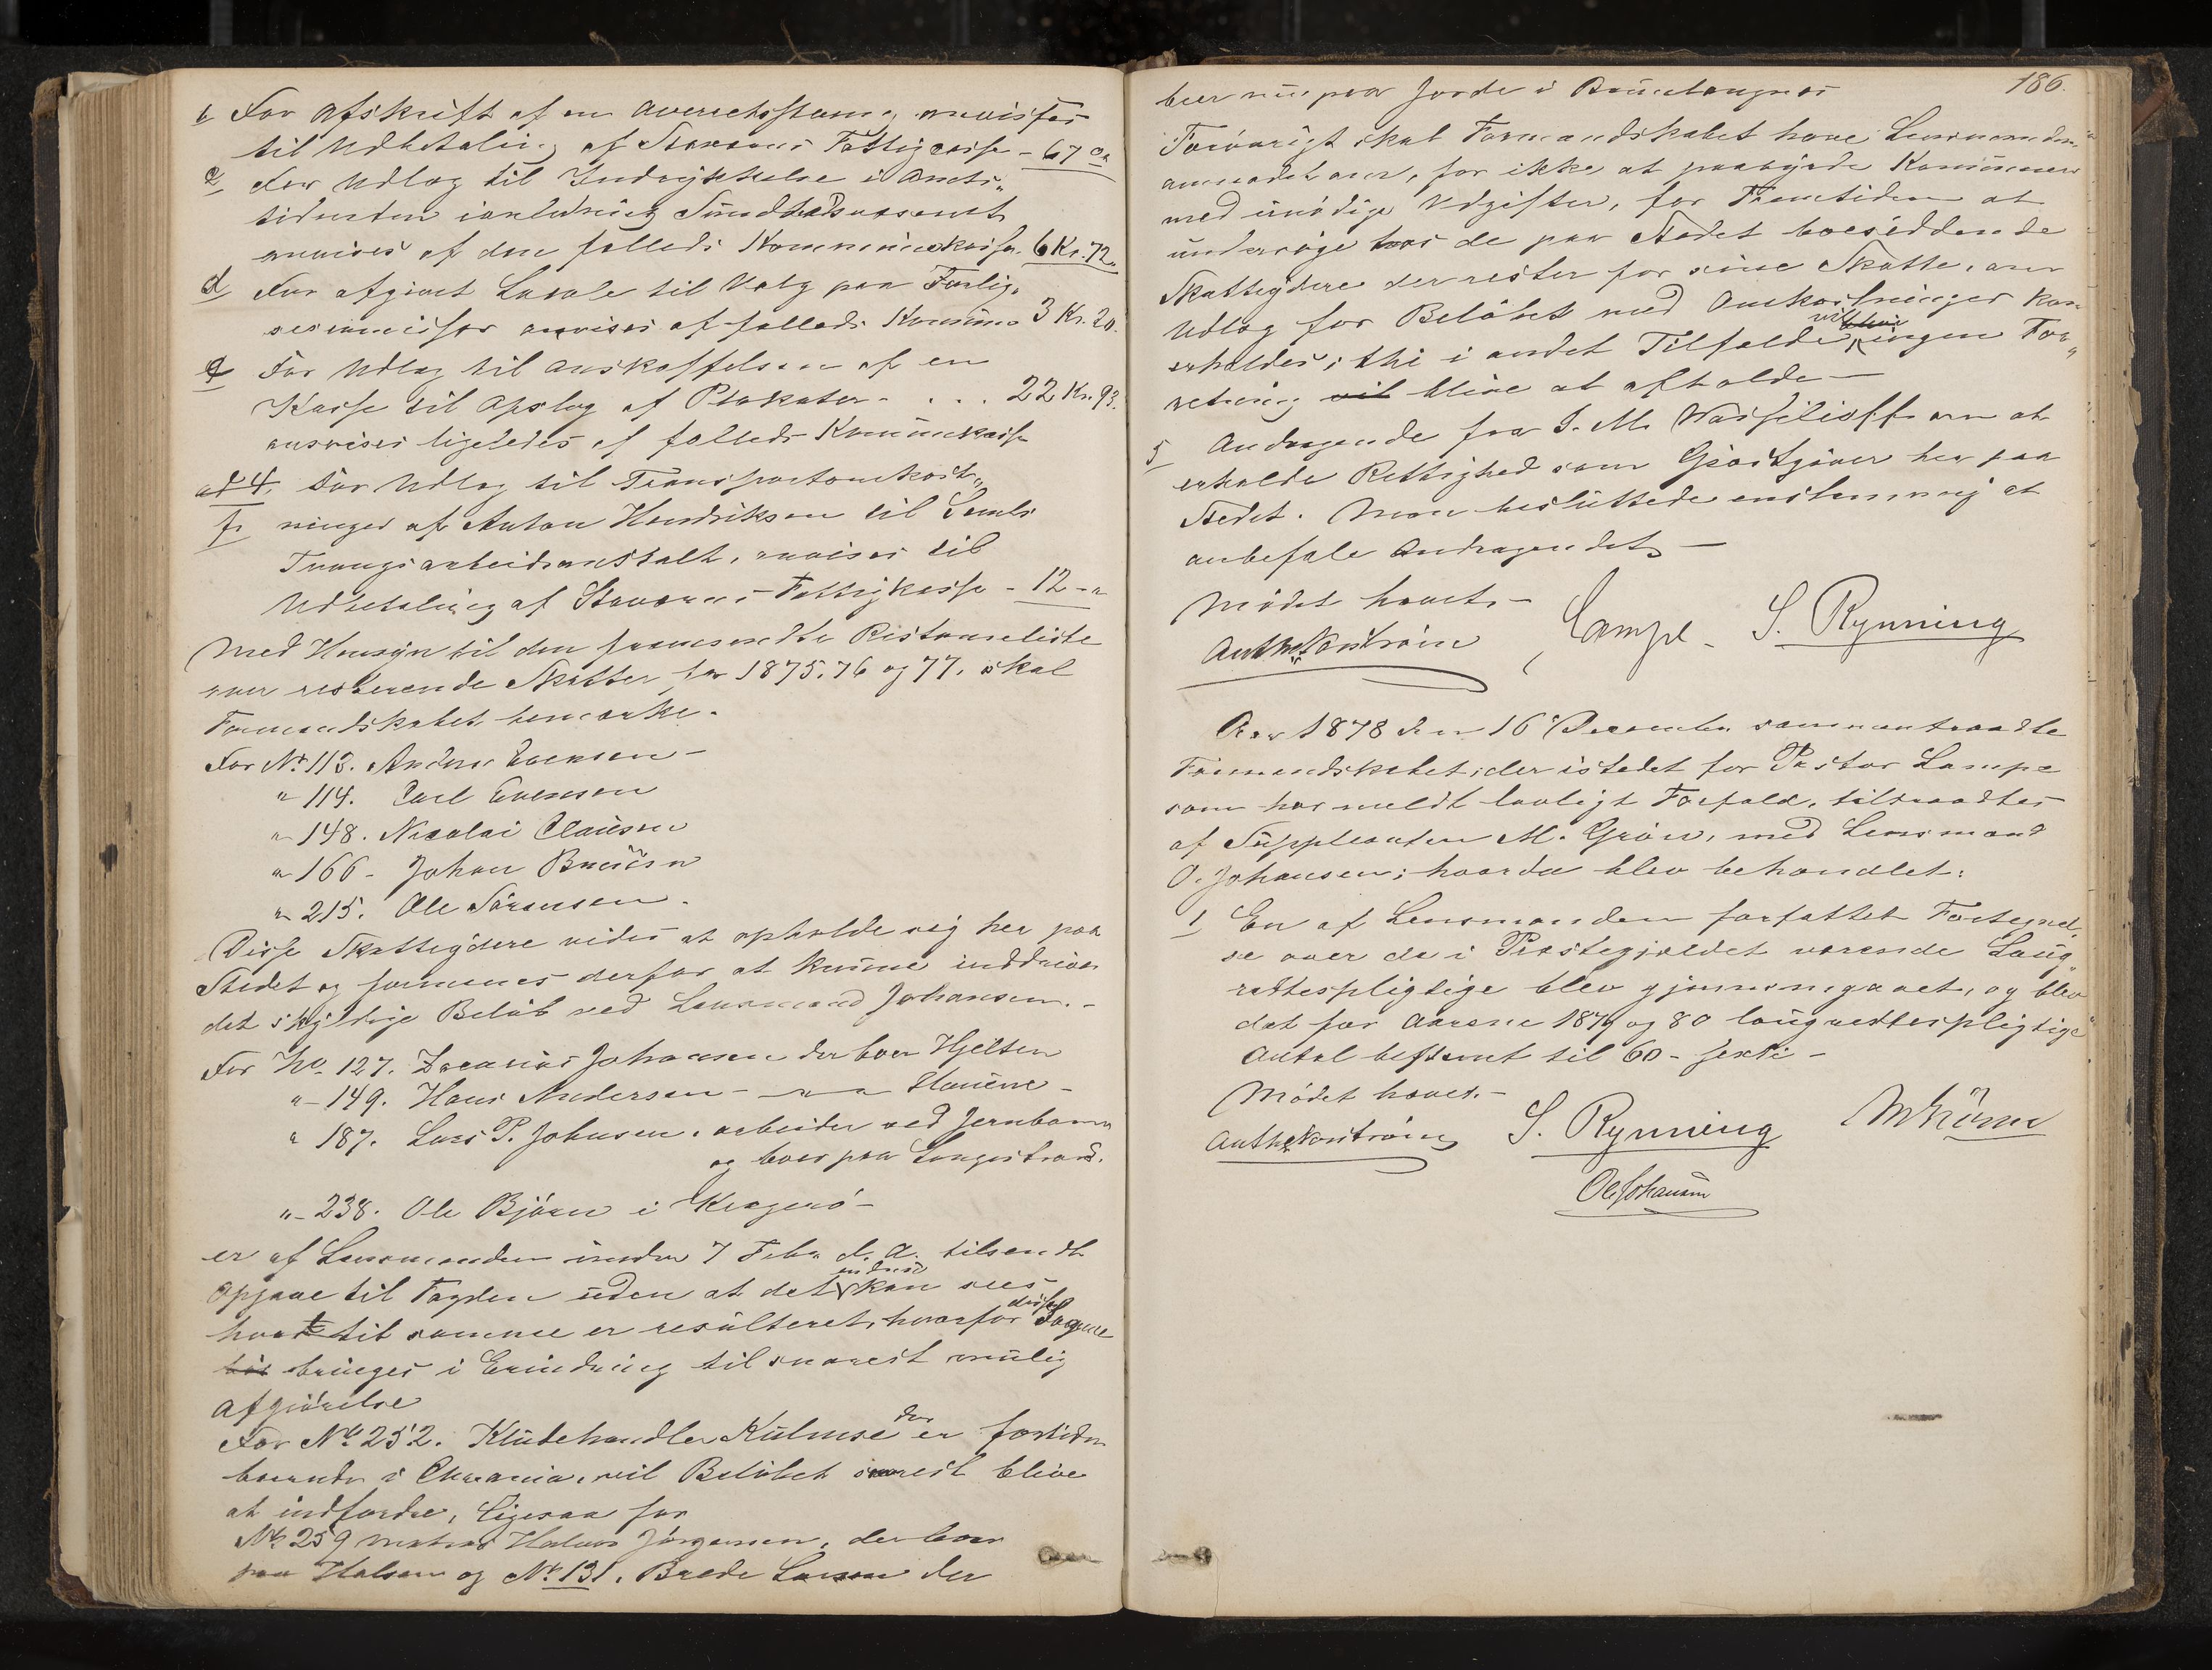 b For Afskrift af en Overretsstevning anvises
til Udbetaling af Staværns Fattigcasse - 67 Ør
c For Udlæg til Indrykkelse i Amts-
tidenden i anledning Sundhedsvæsenet
anvises af den fælleds Kommunekasse. 6 Kr. 72.
d For afgivet Locale til Valg paa Forlig-
ses anvises af fælleds Kommune 3 Kr. 20.
e For Udlæg til Anskaffelsen af en
Kasse til Opslag af Plakater - . . . 22 Kr. 93.
anvises ligeledes af fælleds Kommunekasse
ad 4. For Udlæg til Transportomkost-
f. ninger af Anton Hendriksen til
Tvangsarbeidsanstalt, anvises til
Udbetaling af Staværns Fattigkasse - 12 - "
Med Hensyn til den fremsendte Restanceliste
over resterende Skatter for 1875. 76 og 77. skal
Formandskabet bemærke.
For No 113. Anders Evensen -
" 114. Carl Evensen
" 148. Nicolai Clausen
" 166 - Johan
" 215. Ole Sørensen -
Disse Skatteydere vides at opholde sig her paa
Stedet og formenes derfor at kunne inddrives
det skyldige Beløb ved Lensmand Johansen. -
For No 127. Johansen der boer Hjelten
" - 149. Hans Andersen - " " Stavern -
" 187. Lars P. Johnsen. arbeider ved Jernbanen
og boer paa Langestrand.
" - 238. Ole Bjørn i Kragerø -
er af Lensmanden under 7 Febr. d. A. tilsendt
Opgave til Fogden uden at det endnu kan sees
hvad til samme er resulteret, hvorfor disse Sagene
bør bringes i Erindring til snarest mulig
Afgjørelse
For No 252. Kludehandler Kulmse der er fortiden
boende i Chrania, vil Beløbet snarest blive
at indfordre, ligesaa for
No 259 Matros Halvor Jørgensen, der boer
paa Halsen og No 131. Brede Larsen der
186.
boer nu paa Jorde i Brunlaugnæs
Forøvrigt skal Formandskabet have Lensmanden
anmodet om, for ikke at paabyrde Kommunen
med unødige Udgifter, for Fremtiden at
undersøge hos de paa Stedet boesiddende
Skatteydere der rester for sine Skatte, om
Udlæg for Beløbet med Omkostninger kan
erholdes; thi i andet Tilfælde vil blive ingen For-
retning vil blive at afholde -
5 Andragende fra J. M. Wassilioff om at
erholde Rettighed som Gjæstgiver her paa
Stedet. Man besluttede enstemmig at
anbefale Andragendet -
Mødet hævet. -
Lampe - S. Rynning
Aar 1878 den 16 December sammentraadte
Formandskabet; der istedet for Pastor Lampe
som har meldt lovligt Forfald, tiltraadtes
af Suppleanten M. Grøn, med Lensmand
O. Johansen; hvorda blev behandlet:
1 En af Lensmanden forfattet Fortegnel-
se over de i Præstegjældet værende Laug-
rettespligtige blev gjennemgaaet, og blev
det for Aarene 1879 og 80 laugrettespligtige
Antal bestemt til 60 - sexti -
Mødet hævet. -
S. Rynning M Grøn
Ol. Johansen